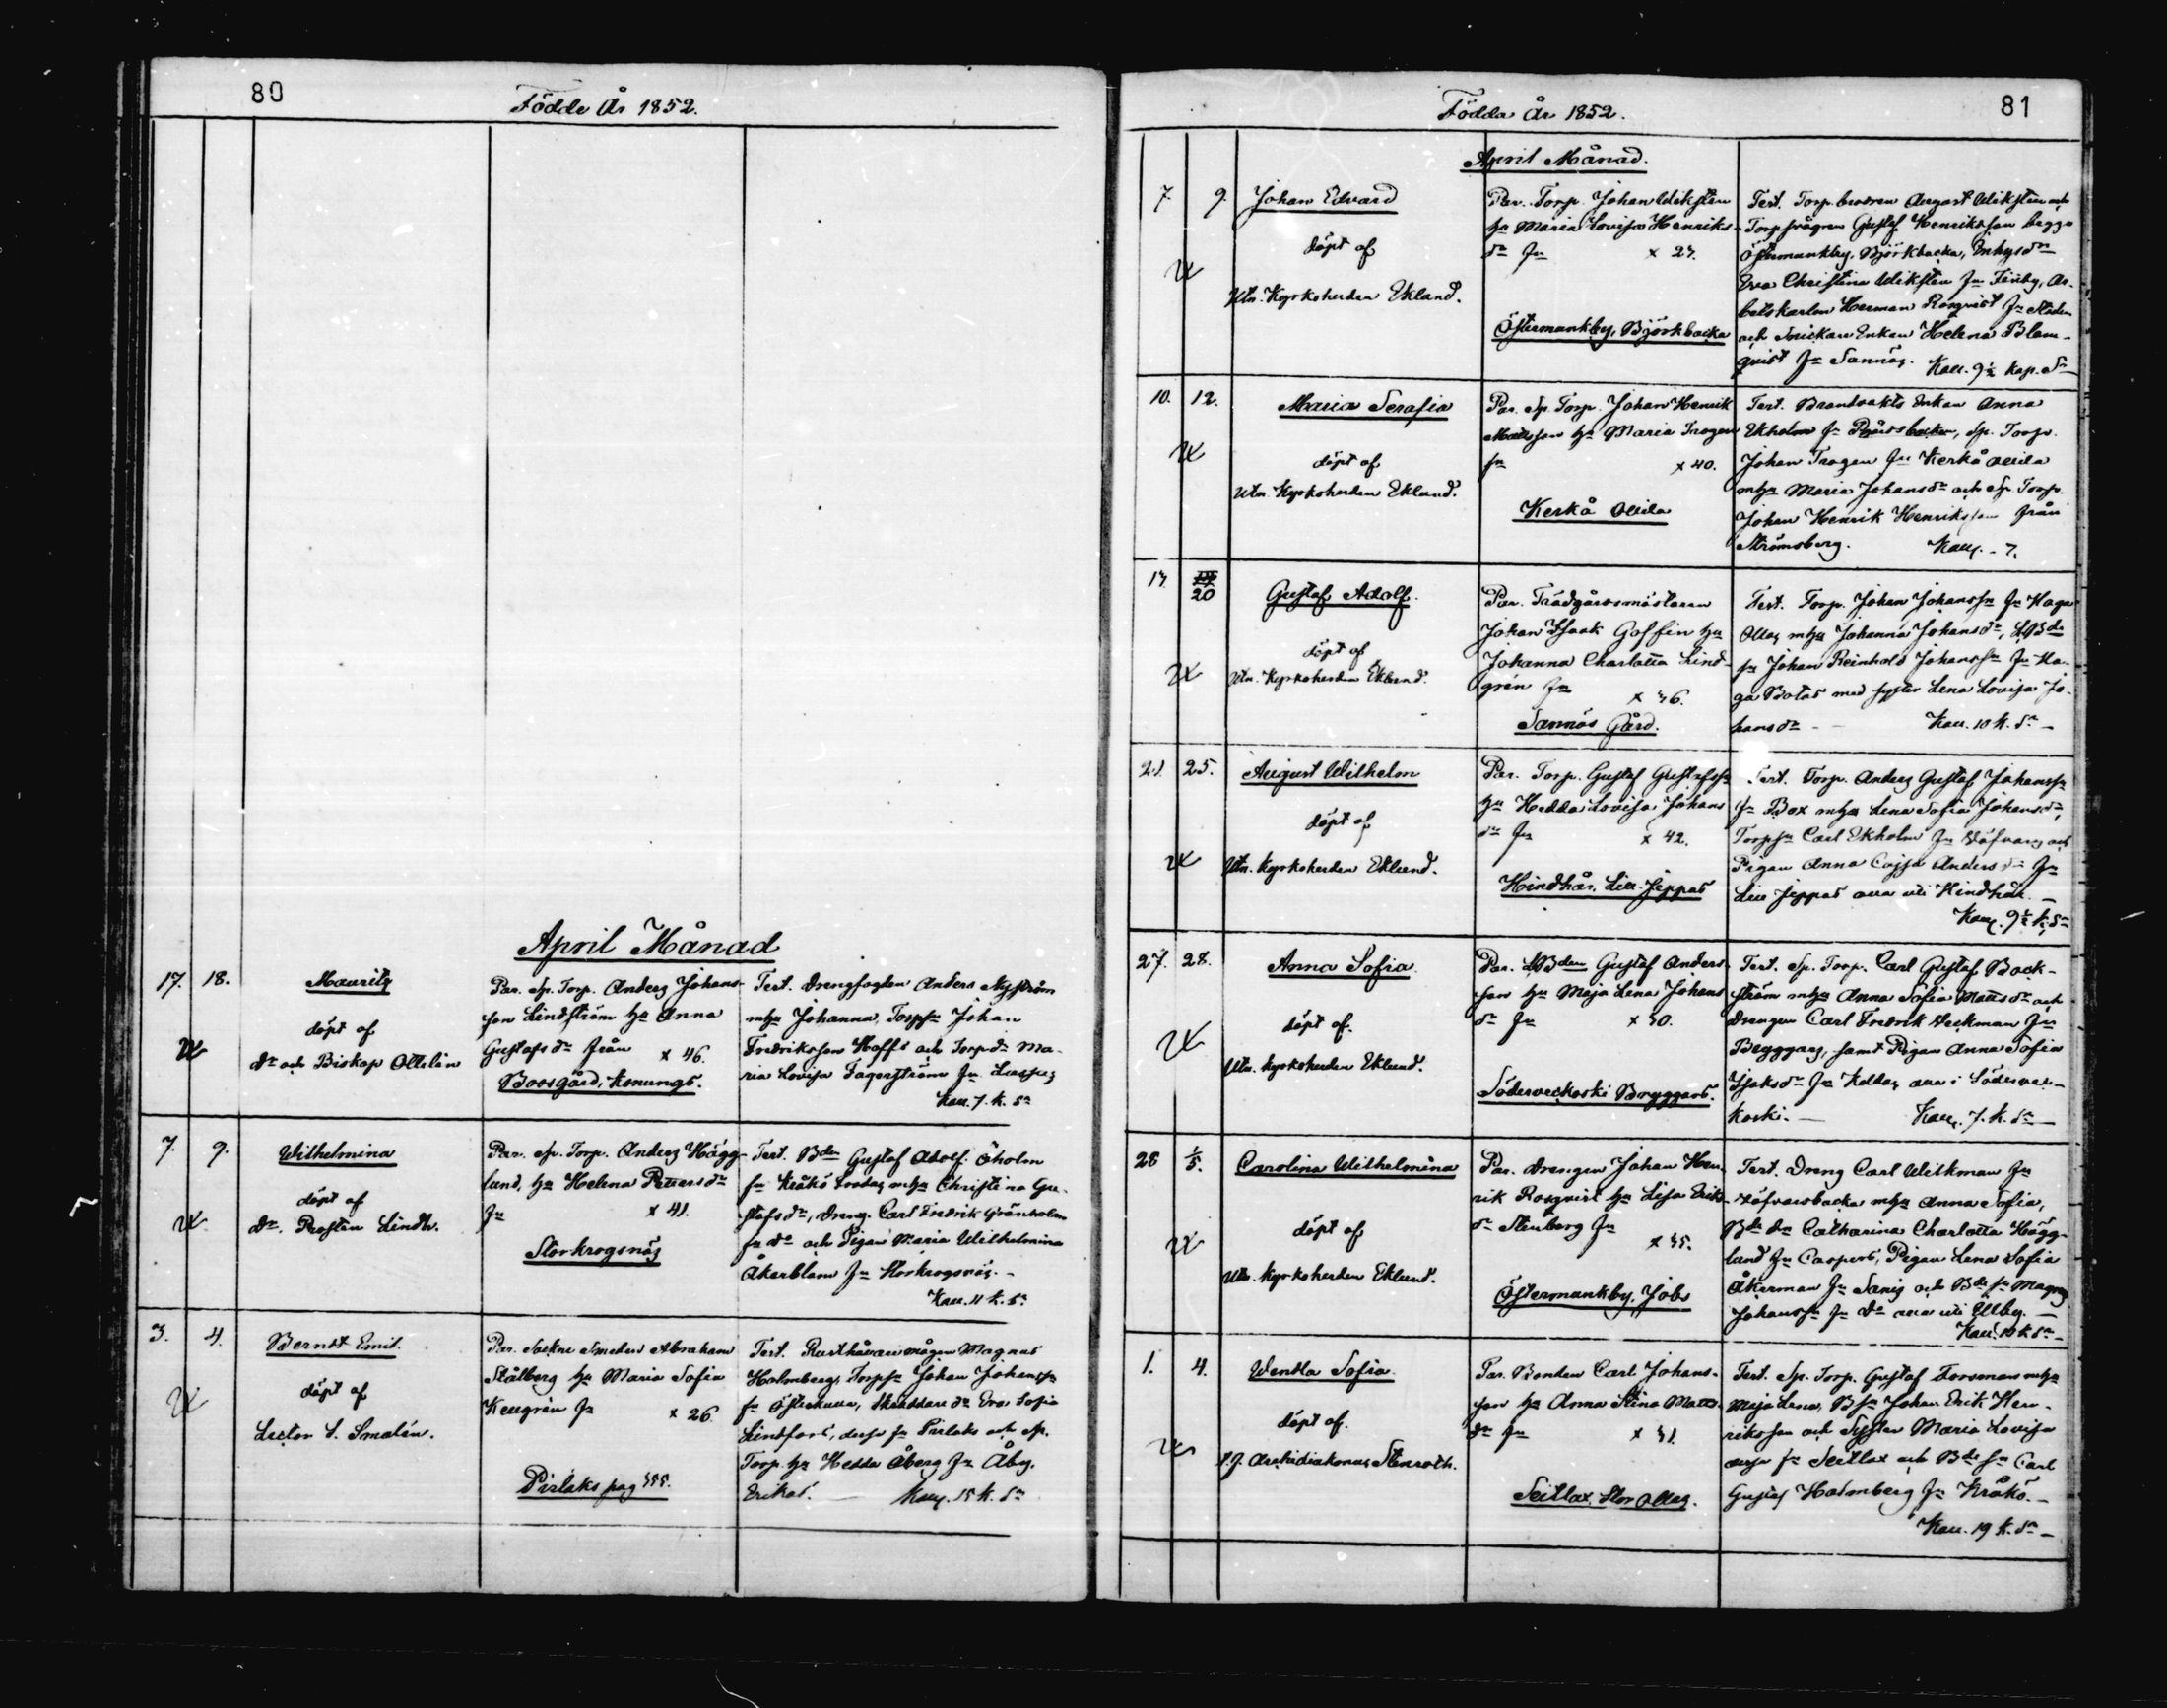 80
Födde År 1852.
April Månad
17. 18.
Mauritz
döpt af
Dr och Biskop Ottelin
Par. Sp. Torp. Anders Johans-
son Lindström hu Anna
Gustafs dr från × 46.
Boosgård, Konungs.
Test. Drengfogden Anders Nyström
m hu Johanna, Torp sn Johan
Fredriksson Hoffs och Torp dr Ma-
ria Lovisa Fagerström fr
Kall. 7. k. sn
7. 9.
Wilhelmina
döpt af
Dr. Prosten Lindh.
Par. Sp. Torp. Anders Hägg-
lund, hu Helena Petters dr
fr × 41.
Storkrogsnäs
Test. Bdn Gustaf Adolf Öholm
fr Kråkö m hu Christina Gu-
stafs dr, Dreng. Carl Fredrik Grönholm
fr do och Pigan Maria Wilhelmina
Åkerblom fr Storkrogsnäs. -
Kall. 11 k. sn
3. 4.
Berndt Emil.
döpt af
Lector S. Smalén.
Par. Sockne Smeden Abraham
Stålberg hu Maria Sofia
fr × 26
Pirlaks pag 355.
Test. Rusthållare mågen Magnus
Holmberg, Torp sn Johan Johanss
fr, Skräddare dr Eva Sofia
Lindfors, desse fr Pirlaks och sp.
Torp. hu Hedda Åberg fr Åby,
Erikas. Kall. 15 k. sn
81
Födda År 1852.
April Månad.
7 9.
Johan Edvard
döpt af
Utn. Kyrkoherden Eklund.
Par. Torp. Johan Wiksten
hu Maria Lovisa Henriks-
dr fr × 27.
Östermunkby, Björkbacka
Test. Torp. brodren August Wiksten och
Torp svågren Gustaf Henriksson begge
Östermunkby, Björkbacka, Inhys dr
Eva Christina Wiksten fr Finby, Ar-
betskarlen Herman Rosqvist fr Staden
och Snickare Enkan Helena Blom-
qvist fr Sannäs. Kall. 9½ kap. Sn
10. 12.
Maria Serafia
döpt af
Utn. Kyrkoherden Eklund.
Par. Sp. Torp. Johan Henrik
Mattsson hu Maria Trogen
fr × 40.
Kerkå Ollila
Test. Brandvakts Enkan Anna
Ekholm fr, Sp. Torp.
Johan Trogen fr Kerkå Ollila
m hu Maria Johans dr och Sp. Torp.
Johan Henrik Henriksson från
Strömsberg. Kall. - 7.
17 20
Gustaf Adolf.
döpt af
Utn. Kyrkoherden Eklund.
Par. Trädgårdsmästaren
Johan Isaak Goffin hu
Johanna Charlotta Lind-
grén fr × 46.
Sannäs Gård.
Test. Torp. Johan Johanss fr Haga
Ollas m hu Johanna Johans dr, LBde
sn Johan Reinhold Johanss fr Ha-
ga Botas med syster Lena Lovisa Jo-
hans dr - Kall. 10 k. sn -
21. 25.
August Wilhelm
döpt af
Utn. Kyrkoherden Eklund.
Par. Torp. Gustaf Gustafss
hu Hedda Lovisa Johans
dr fr × 42.
Hindhår, Lill Jeppas
Test. Torp. Anders Gustaf Johanss
fr Box m hu Lena Sofia Johans dr,
Torp sn Carl Ekholm fr och
Pigan Anna Cajsa Anders dr fr
Lill Jeppas alla uti Hindhår. -
Kall. 9½ k. sn
27. 28.
Anna Sofia
döpt af.
Utn. Kyrkoherden Eklund.
Par. LBden Gustaf Anders-
son hu Maja Lena Johans
dr fr × 50.
Söderveckoski Bryggars.
Test. Sp. Torp. Carl Gustaf Back-
ström m hu Anna Sofia Matts dr och
drengen Carl Fredrik Veckman fr
Bryggars, samt Pigan Anna Sofia
Isaks dr fr alla i Söderveс-
koski. - Kall. 7. k. sn -
28 1/5.
Carolina Wilhelmina
döpt af
Utn. Kyrkoherden Eklund.
Par. Drengen Johan Hen-
rik Rosqvist hu Lisa Erik
dr Stenberg fr
× 35.
Östermunkby, Jobs
Test. Dreng Carl Wilkman fr
m hu Anna Sofia,
Bde dr Catharina Charlotta Hägg-
lund fr Caspers, Pigan Lena Sofia
Åkerman fr och Bde sn Magnus
Johanss fr do alla uti Illby. -
Kall. 10 k. sn -
1. 4.
Wendla Sofia
döpt af.
V. J. Archidiakonus Stenroth.
Par. Bonden Carl Johans-
son hu Anna Stina Matts-
dr fr × 31.
Seitlax, Stor Ollas.
Test. Sp. Torp. Gustaf Forsman m hu
Maja Lena, B sn Johan Erik Hen-
riksson och Systern Maria Lovisa
desse fr Seitlax och Bde sn Carl
Gustaf Holmberg fr Kråkö. -
Kall. 19 k. sn -